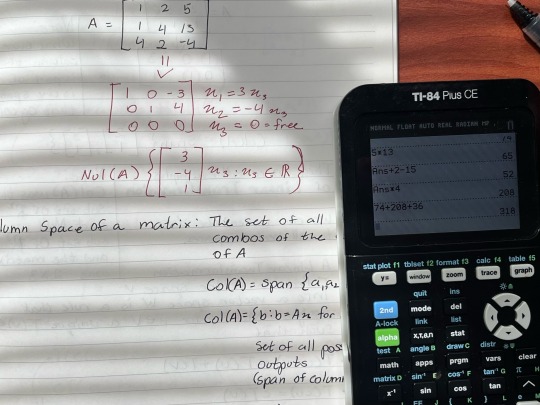 A =
1 2 5
1 4 13
4 2 -4
1 0 -3 x₁ = 3x₃
0 1 4 x₂ = -4x₃
0 0 0 x₃ = 0 = free
Nul(A) { [3 -4 1] x₃ : x₃ ∈ ℝ }
lumn Space of a matrix: The set of all
combos of the
of A
Col(A) = span {a₁,a₂
Col(A) = {b : b = Ax for
set of all pos
outputs
(span of colum
TI-84 Plus CE
NORMAL FLOAT AUTO REAL RADIAN MP
5*13
65
Ans+2-15
52
Ans*4
208
74+208+36
318
stat plot f1 tblset f2 format f3 calc f4 table f5
y= window zoom trace graph
quit ins
2nd mode del
A-lock link list
alpha X,T,θ,n stat
test A angle B draw C distr
math apps prgm vars clear
matrix D sin⁻¹ E cos⁻¹ F tan⁻¹ G π H
x⁻¹ sin cos tan